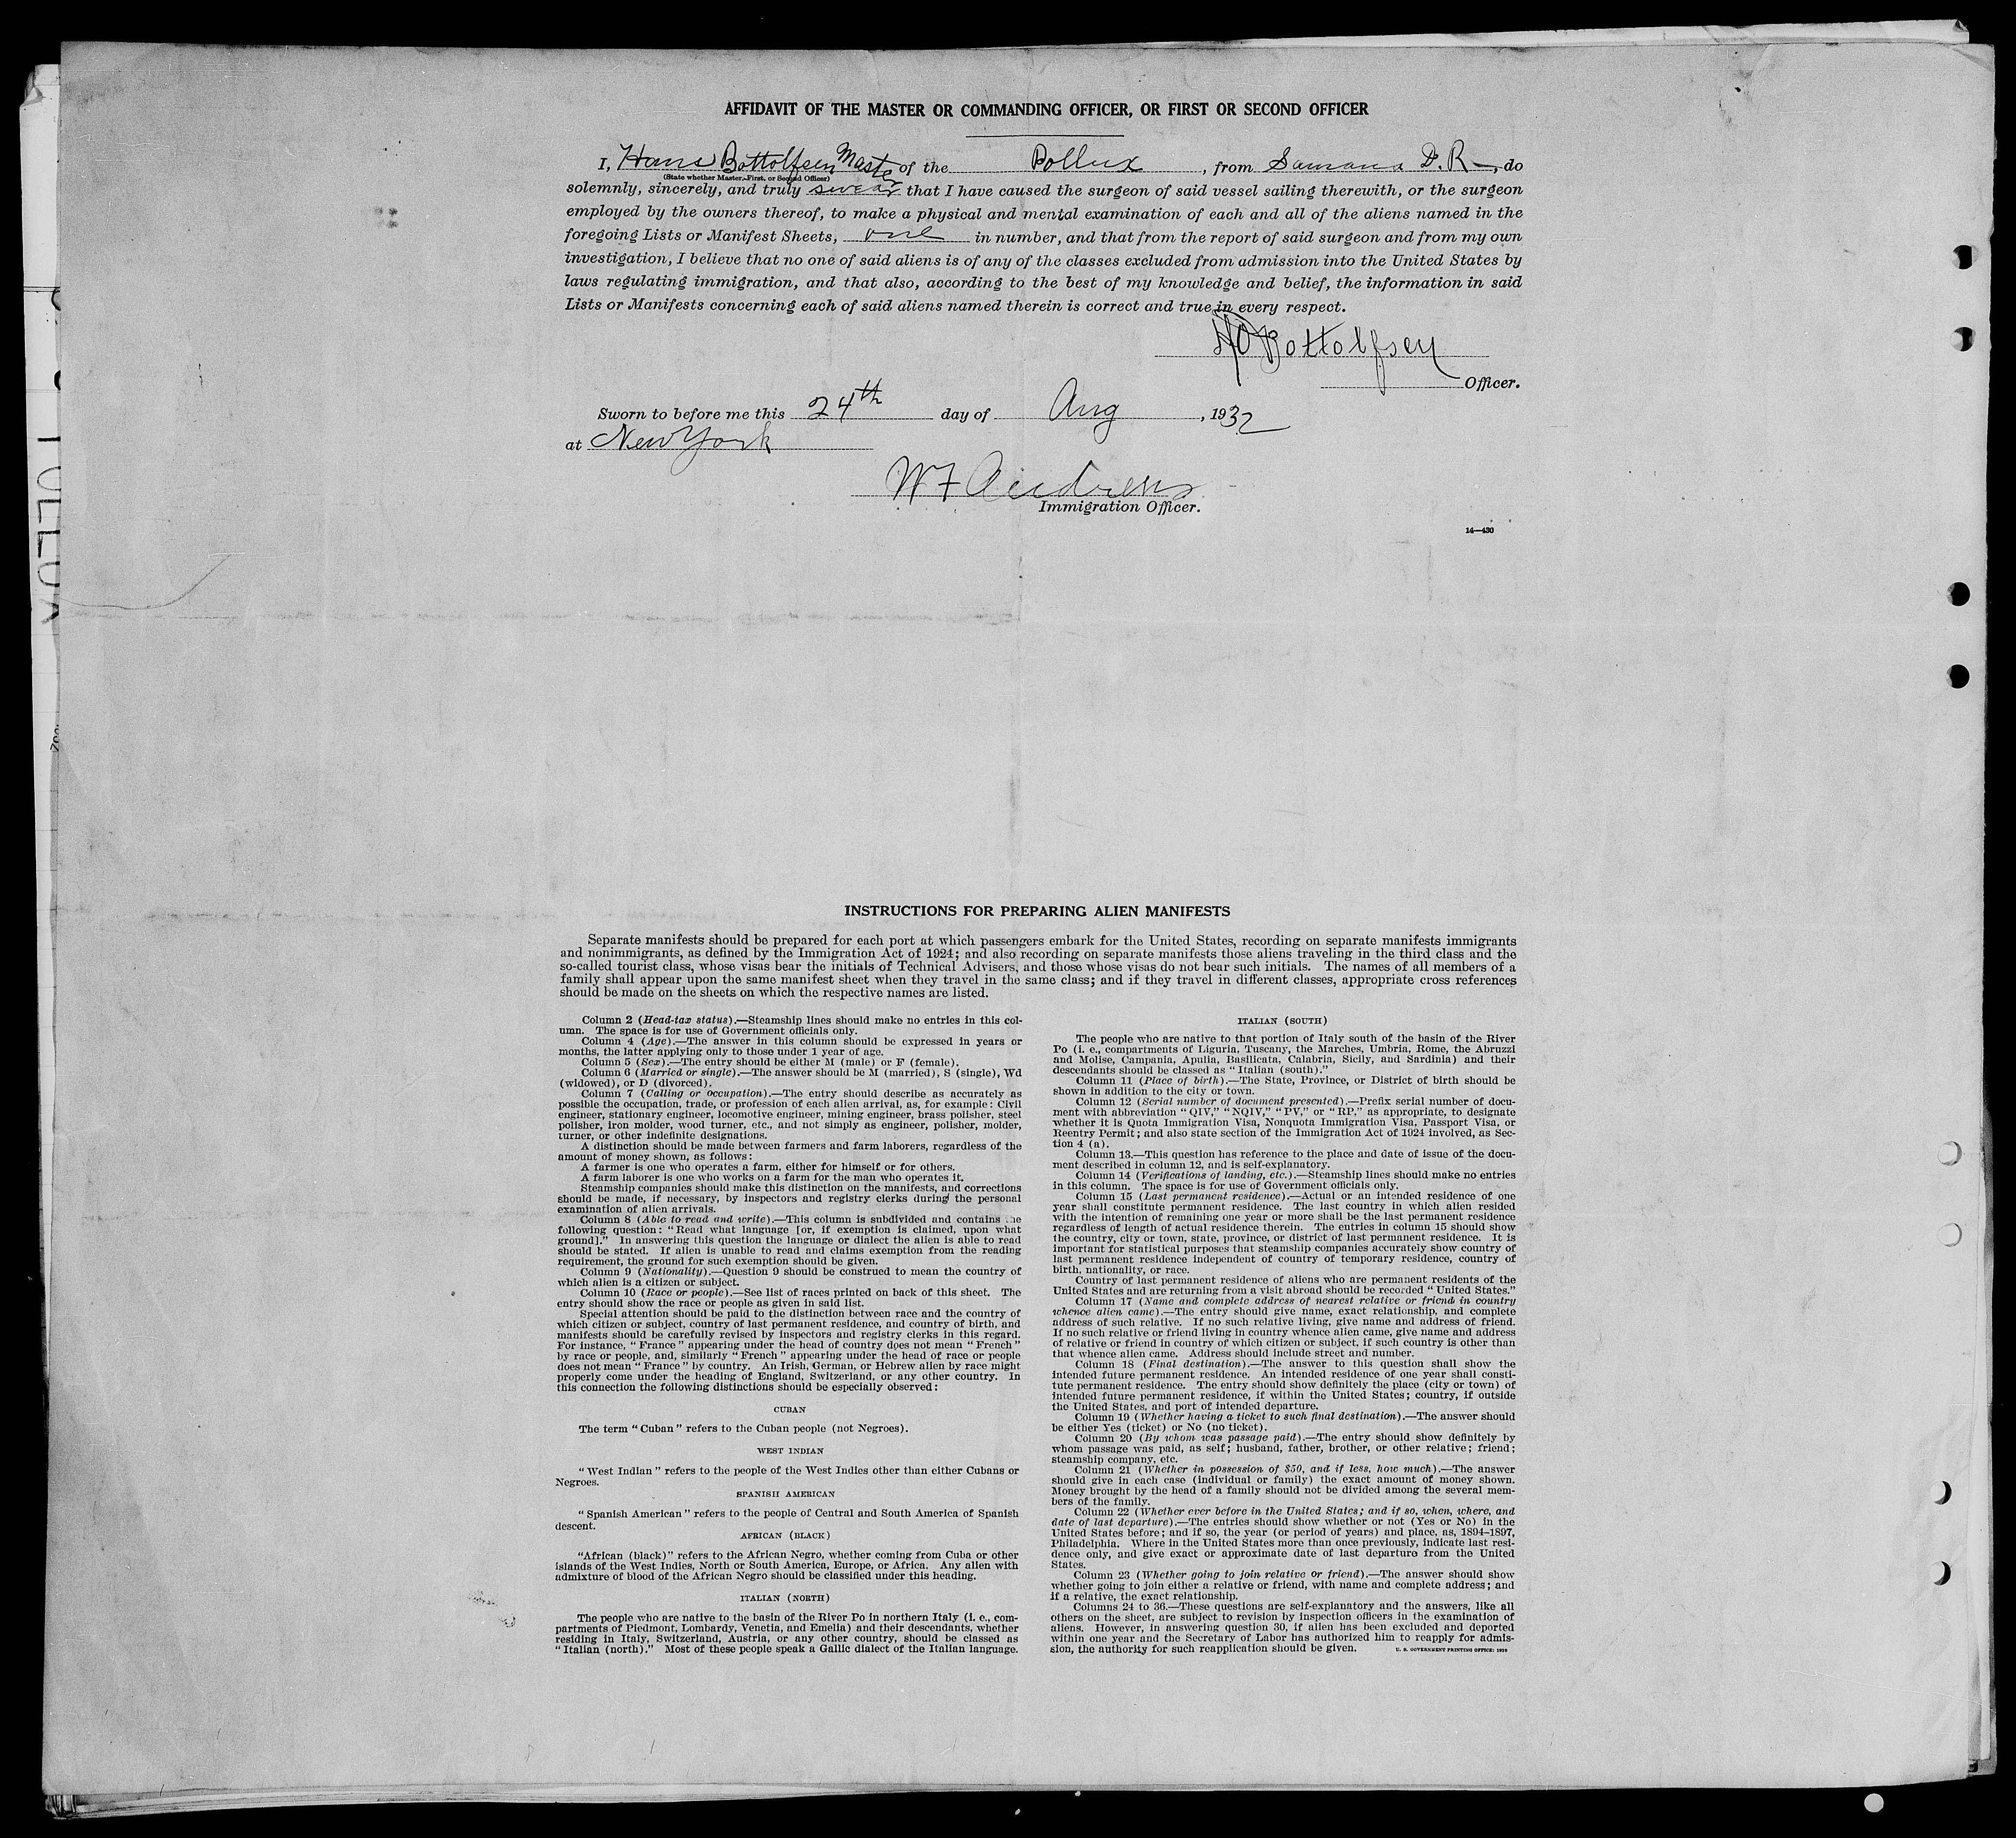 AFFIDAVIT OF THE MASTER OR COMMANDING OFFICER, OR FIRST OR SECOND OFFICER
I, Hans Bottolfsen Master of the Pollux, from Samana D. R—, do
(State whether Master, First, or Second Officer)
solemnly, sincerely, and truly swear that I have caused the surgeon of said vessel sailing therewith, or the surgeon
employed by the owners thereof, to make a physical and mental examination of each and all of the aliens named in the
foregoing Lists or Manifest Sheets, one in number, and that from the report of said surgeon and from my own
investigation, I believe that no one of said aliens is of any of the classes excluded from admission into the United States by
laws regulating immigration, and that also, according to the best of my knowledge and belief, the information in said
Lists or Manifests concerning each of said aliens named therein is correct and true in every respect.
HO Bottolfsen
Officer.
Sworn to before me this 24th day of Aug, 1932
at New York
W F Andrews
Immigration Officer.
14—430
POLLUX
INSTRUCTIONS FOR PREPARING ALIEN MANIFESTS
Separate manifests should be prepared for each port at which passengers embark for the United States, recording on separate manifests immigrants
and nonimmigrants, as defined by the Immigration Act of 1924; and also recording on separate manifests those aliens traveling in the third class and the
so-called tourist class, whose visas bear the initials of Technical Advisers, and those whose visas do not bear such initials. The names of all members of a
family shall appear upon the same manifest sheet when they travel in the same class; and if they travel in different classes, appropriate cross references
should be made on the sheets on which the respective names are listed.
Column 2 (Head-tax status).—Steamship lines should make no entries in this col-
umn. The space is for use of Government officials only.
Column 4 (Age).—The answer in this column should be expressed in years or
months, the latter applying only to those under 1 year of age.
Column 5 (Sex).—The entry should be either M (male) or F (female).
Column 6 (Married or single).—The answer should be M (married), S (single), Wd
(widowed), or D (divorced).
Column 7 (Calling or occupation).—The entry should describe as accurately as
possible the occupation, trade, or profession of each alien arrival, as, for example: Civil
engineer, stationary engineer, locomotive engineer, mining engineer, brass polisher, steel
polisher, iron molder, wood turner, etc., and not simply as engineer, polisher, molder,
turner, or other indefinite designations.
A distinction should be made between farmers and farm laborers, regardless of the
amount of money shown, as follows:
A farmer is one who operates a farm, either for himself or for others.
A farm laborer is one who works on a farm for the man who operates it.
Steamship companies should make this distinction on the manifests, and corrections
should be made, if necessary, by inspectors and registry clerks during the personal
examination of alien arrivals.
Column 8 (Able to read and write).—This column is subdivided and contains the
following question: "Read what language [or, if exemption is claimed, upon what
ground]." In answering this question the language or dialect the alien is able to read
should be stated. If alien is unable to read and claims exemption from the reading
requirement, the ground for such exemption should be given.
Column 9 (Nationality).—Question 9 should be construed to mean the country of
which alien is a citizen or subject.
Column 10 (Race or people).—See list of races printed on back of this sheet. The
entry should show the race or people as given in said list.
Special attention should be paid to the distinction between race and the country of
which citizen or subject, country of last permanent residence, and country of birth, and
manifests should be carefully revised by inspectors and registry clerks in this regard.
For instance, "France" appearing under the head of country does not mean "French"
by race or people, and, similarly "French" appearing under the head of race or people
does not mean "France" by country. An Irish, German, or Hebrew alien by race might
properly come under the heading of England, Switzerland, or any other country. In
this connection the following distinctions should be especially observed:
CUBAN
The term "Cuban" refers to the Cuban people (not Negroes).
WEST INDIAN
"West Indian" refers to the people of the West Indies other than either Cubans or
Negroes.
SPANISH AMERICAN
"Spanish American" refers to the people of Central and South America of Spanish
descent.
AFRICAN (BLACK)
"African (black)" refers to the African Negro, whether coming from Cuba or other
islands of the West Indies, North or South America, Europe, or Africa. Any alien with
admixture of blood of the African Negro should be classified under this heading.
ITALIAN (NORTH)
The people who are native to the basin of the River Po in northern Italy (i. e., com-
partments of Piedmont, Lombardy, Venetia, and Emelia) and their descendants, whether
residing in Italy, Switzerland, Austria, or any other country, should be classed as
"Italian (north)." Most of these people speak a Gallic dialect of the Italian language.
ITALIAN (SOUTH)
The people who are native to that portion of Italy south of the basin of the River
Po (i. e., compartments of Liguria, Tuscany, the Marches, Umbria, Rome, the Abruzzi
and Molise, Campania, Apulia, Basilicata, Calabria, Sicily, and Sardinia) and their
descendants should be classed as "Italian (south)."
Column 11 (Place of birth).—The State, Province, or District of birth should be
shown in addition to the city or town.
Column 12 (Serial number of document presented).—Prefix serial number of docu-
ment with abbreviation "QIV," "NQIV," "PV," or "RP," as appropriate, to designate
whether it is Quota Immigration Visa, Nonquota Immigration Visa, Passport Visa, or
Reentry Permit; and also state section of the Immigration Act of 1924 involved, as Sec-
tion 4 (a).
Column 13.—This question has reference to the place and date of issue of the docu-
ment described in column 12, and is self-explanatory.
Column 14 (Verifications of landing, etc.).—Steamship lines should make no entries
in this column. The space is for use of Government officials only.
Column 15 (Last permanent residence).—Actual or an intended residence of one
year shall constitute permanent residence. The last country in which alien resided
with the intention of remaining one year or more shall be the last permanent residence
regardless of length of actual residence therein. The entries in column 15 should show
the country, city or town, state, province, or district of last permanent residence. It is
important for statistical purposes that steamship companies accurately show country of
last permanent residence independent of country of temporary residence, country of
birth, nationality, or race.
Country of last permanent residence of aliens who are permanent residents of the
United States and are returning from a visit abroad should be recorded "United States."
Column 17 (Name and complete address of nearest relative or friend in country
whence alien came).—The entry should give name, exact relationship, and complete
address of such relative. If no such relative living, give name and address of friend.
If no such relative or friend living in country whence alien came, give name and address
of relative or friend in country of which citizen or subject, if such country is other than
that whence alien came. Address should include street and number.
Column 18 (Final destination).—The answer to this question shall show the
intended future permanent residence. An intended residence of one year shall consti-
tute permanent residence. The entry should show definitely the place (city or town) of
intended future permanent residence, if within the United States; country, if outside
the United States, and port of intended departure.
Column 19 (Whether having a ticket to such final destination).—The answer should
be either Yes (ticket) or No (no ticket).
Column 20 (By whom was passage paid).—The entry should show definitely by
whom passage was paid, as self; husband, father, brother, or other relative; friend;
steamship company, etc.
Column 21 (Whether in possession of $50, and if less, how much).—The answer
should give in each case (individual or family) the exact amount of money shown.
Money brought by the head of a family should not be divided among the several mem-
bers of the family.
Column 22 (Whether ever before in the United States; and if so, when, where, and
date of last departure).—The entries should show whether or not (Yes or No) in the
United States before; and if so, the year (or period of years) and place, as, 1894–1897,
Philadelphia. Where in the United States more than once previously, indicate last resi-
dence only, and give exact or approximate date of last departure from the United
States.
Column 23 (Whether going to join relative or friend).—The answer should show
whether going to join either a relative or friend, with name and complete address; and
if a relative, the exact relationship.
Columns 24 to 36.—These questions are self-explanatory and the answers, like all
others on the sheet, are subject to revision by inspection officers in the examination of
aliens. However, in answering question 30, if alien has been excluded and deported
within one year and the Secretary of Labor has authorized him to reapply for admis-
sion, the authority for such reapplication should be given.
U. S. GOVERNMENT PRINTING OFFICE: